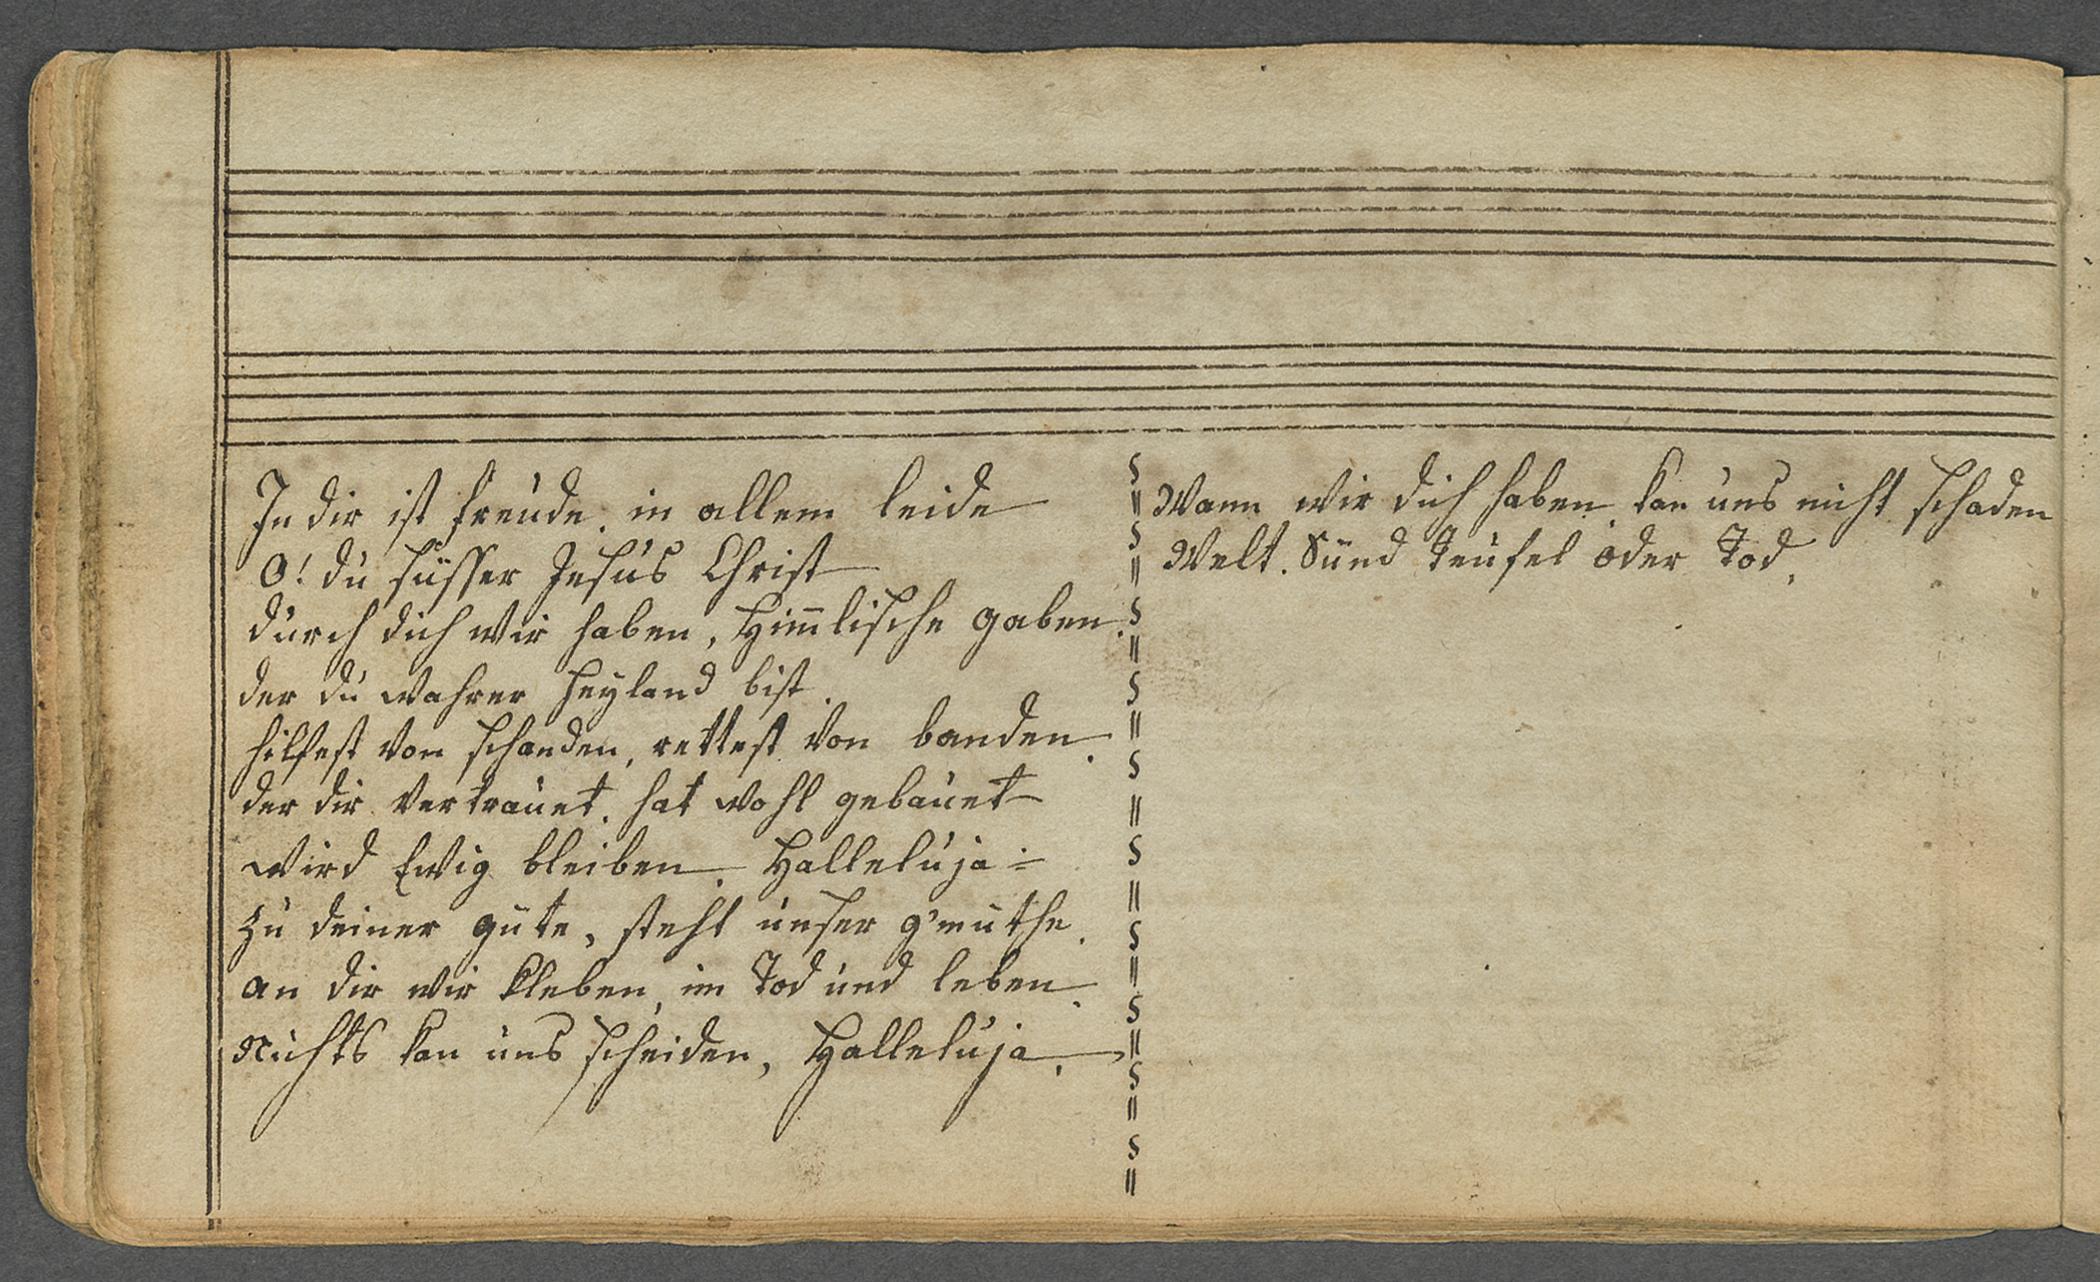 In dir ist freude. in allem leide
O! du süsser Jesus Christ
durch dich wir haben, Him̅lische gaben.
der du wahrer Heyland bist.
hilfest von schanden, rettest von banden.
der dir vertrauet. hat wohl gebauet
wird Ewig bleiben. Halleluja÷
zu deiner güte, steht unser g'müthe.
an dir wir kleben, im Tod und leben.
Nichts kan uns scheiden, Halleluja.
Wann wir dich haben kan uns nicht schaden
Welt. Sünd teufel oder Tod,